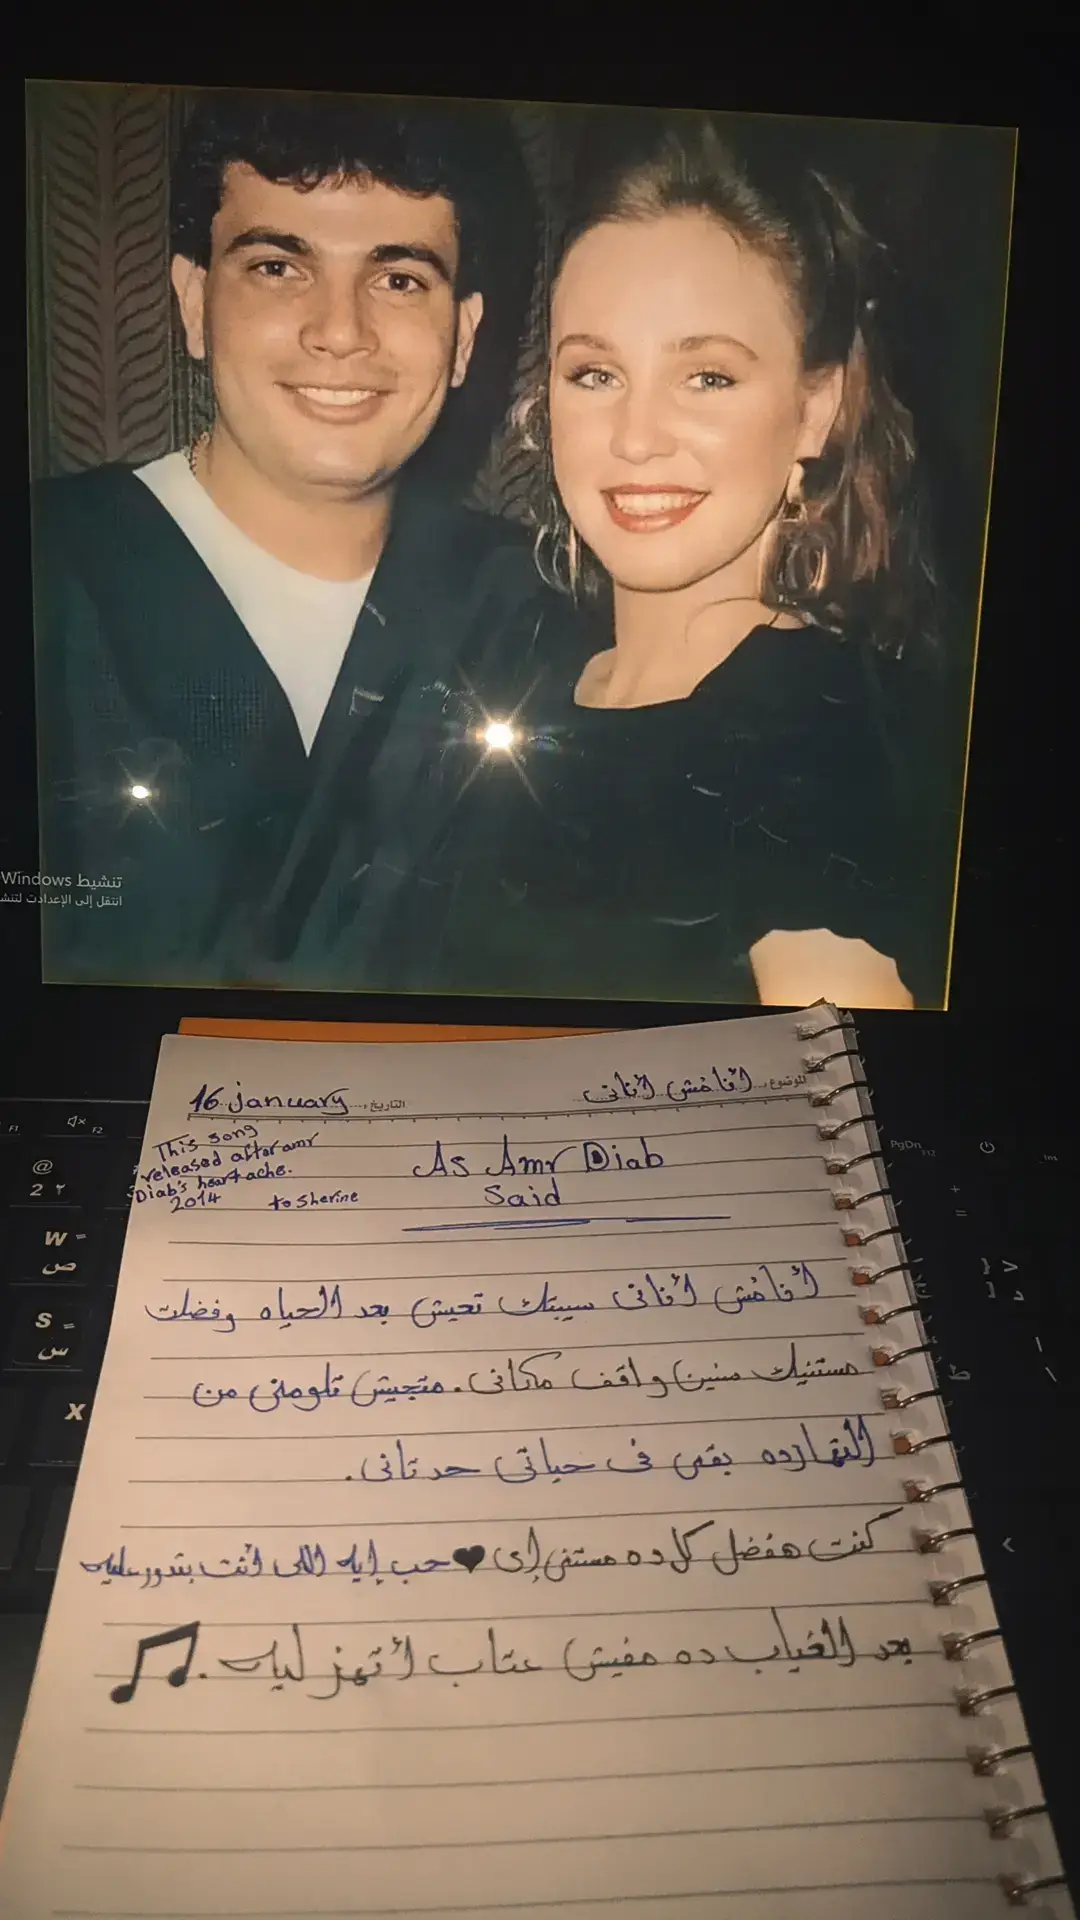 تنشيط Windows
انتقل إلى الإعدادات لتنش
16 january
التاريخ:
الموضوع:
أنا مش أنانى
This song
released after amr
Diab's heartache.
2014
to Sherine
As Amr Diab
Said
أنا مش أنانى سيبتك تعيش بعد الحياه وفضلت
مستنيك سنين واقف مكانى. متجيش تلومنى من
النهارده بقى فى حياتى حد تانى.
كنت هفضل كل ده مستنى إى ♥ حب إيه اللى أنت بتدور عليه
بعد الغياب ده مفيش عتاب أتهز ليه.
F1
F2
@
2 ٢
W
ص
S
س
X
PgDn
F12
Ins
+
=
>
د
ط
\